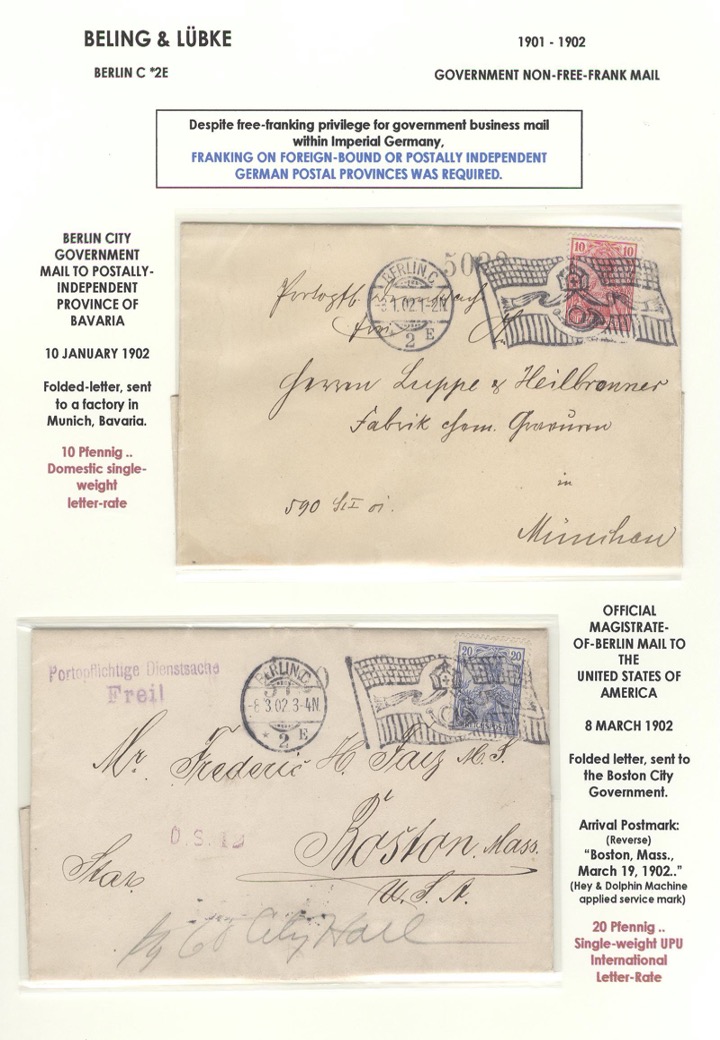 BELING & LÜBKE
1901 - 1902
BERLIN C *2E
GOVERNMENT NON-FREE-FRANK MAIL
Despite free-franking privilege for government business mail
within Imperial Germany,
FRANKING ON FOREIGN-BOUND OR POSTALLY INDEPENDENT
GERMAN POSTAL PROVINCES WAS REQUIRED.
BERLIN CITY
GOVERNMENT
MAIL TO POSTALLY-
INDEPENDENT
PROVINCE OF
BAVARIA
10 JANUARY 1902
Folded-letter, sent
to a factory in
Munich, Bavaria.
10 Pfennig ..
Domestic single-
weight
letter-rate
BERLIN.C.
1.02.1-2N
2 E
10 10
Herren Luppe & Heilbronner
Fabrik chem. Gravüren
in
München
590
OFFICIAL
MAGISTRATE-
OF-BERLIN MAIL TO
THE
UNITED STATES OF
AMERICA
8 MARCH 1902
Folded letter, sent to
the Boston City
Government.
Arrival Postmark:
(Reverse)
“Boston, Mass.,
March 19, 1902..”
(Hey & Dolphin Machine
applied service mark)
20 Pfennig ..
Single-weight UPU
International
Letter-Rate
Portopflichtige Dienstsache
Frei!
BERLIN.C.
-8.3.02.3-4N
* 2 E
20 20
Mr. Frederic H.
Boston. Mass.
U.S.A.
City Hall